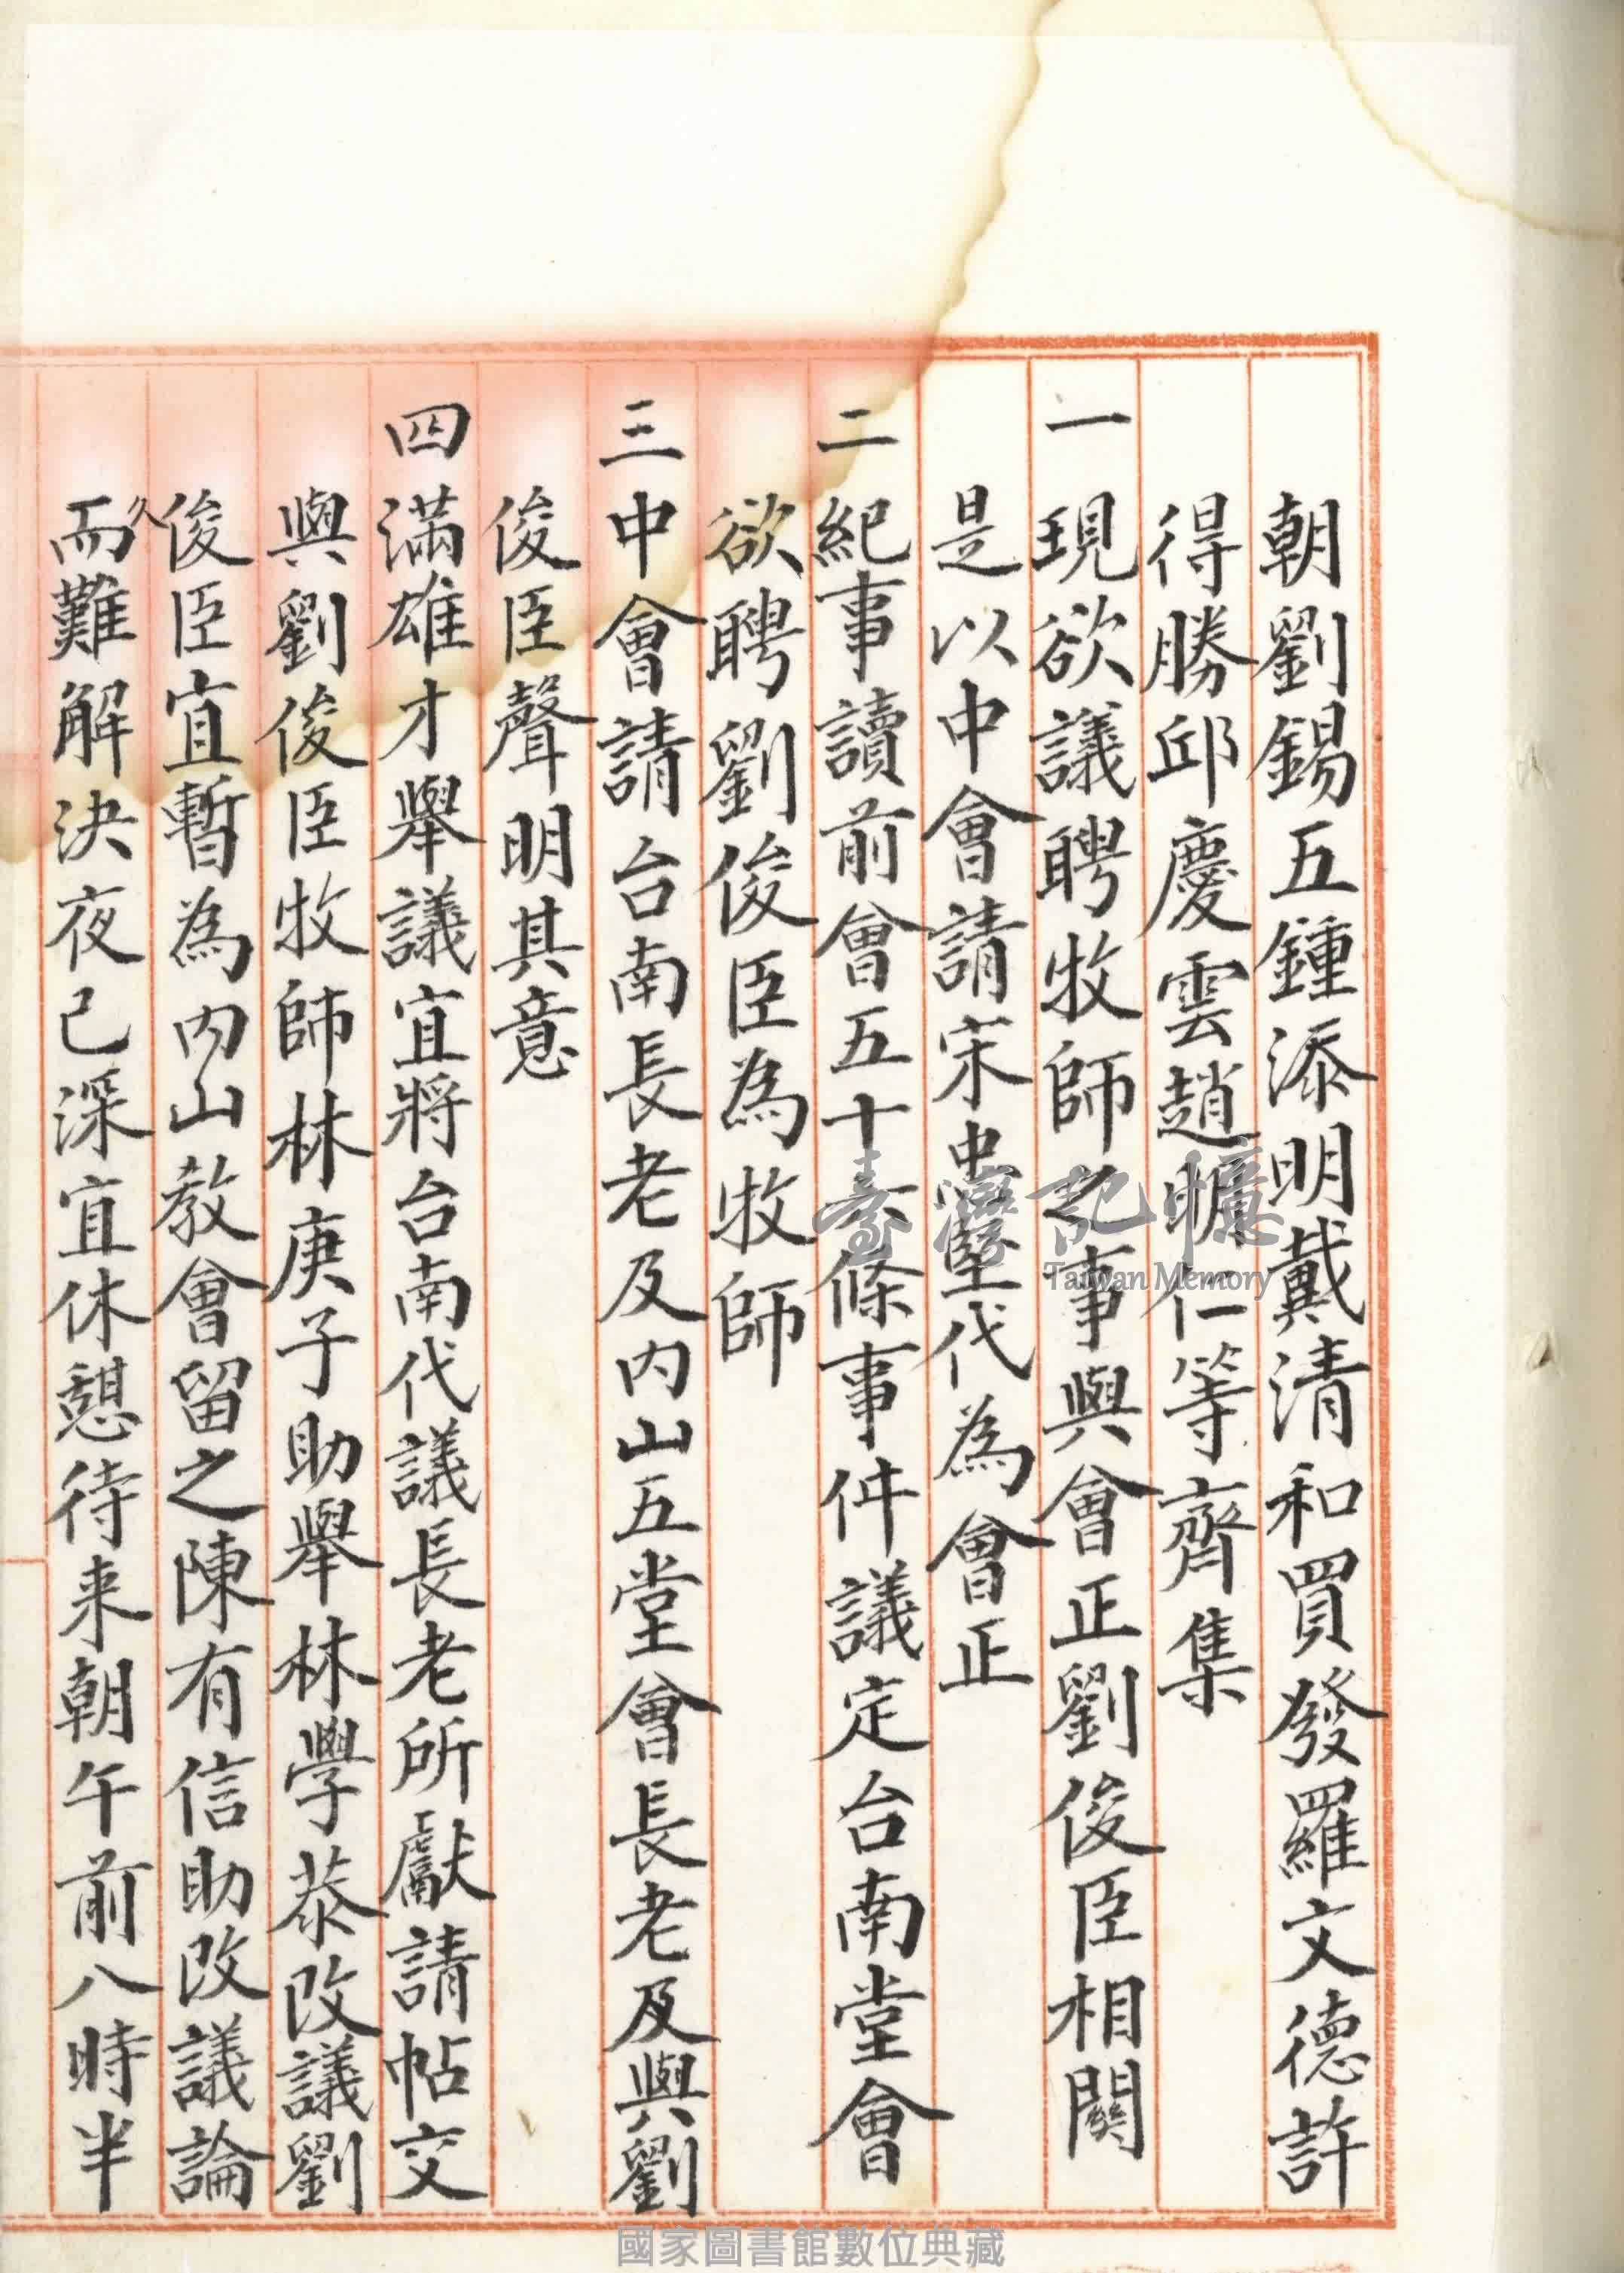 朝劉錫五鍾添明戴清和買發羅文德許
得勝邱慶雲趙明仁等齊集
一現欲議聘牧師之事與會正劉俊臣相關
是以中會請宋忠堅代為會正
二紀事讀前會五十六條事件議定台南堂會
欲聘劉俊臣為牧師
三中會請台南長老及內山五堂會長老及與劉
俊臣聲明其意
四滿雄才舉議宜將台南代議長老所獻請帖交
與劉俊臣牧師林庚子助舉林學恭改議劉
俊臣宜暫為內山教會留之陳有信助改議論
久而難解決夜已深宜休憩待来朝午前八時半
臺灣記憶
Taiwan Memory
國家圖書館數位典藏